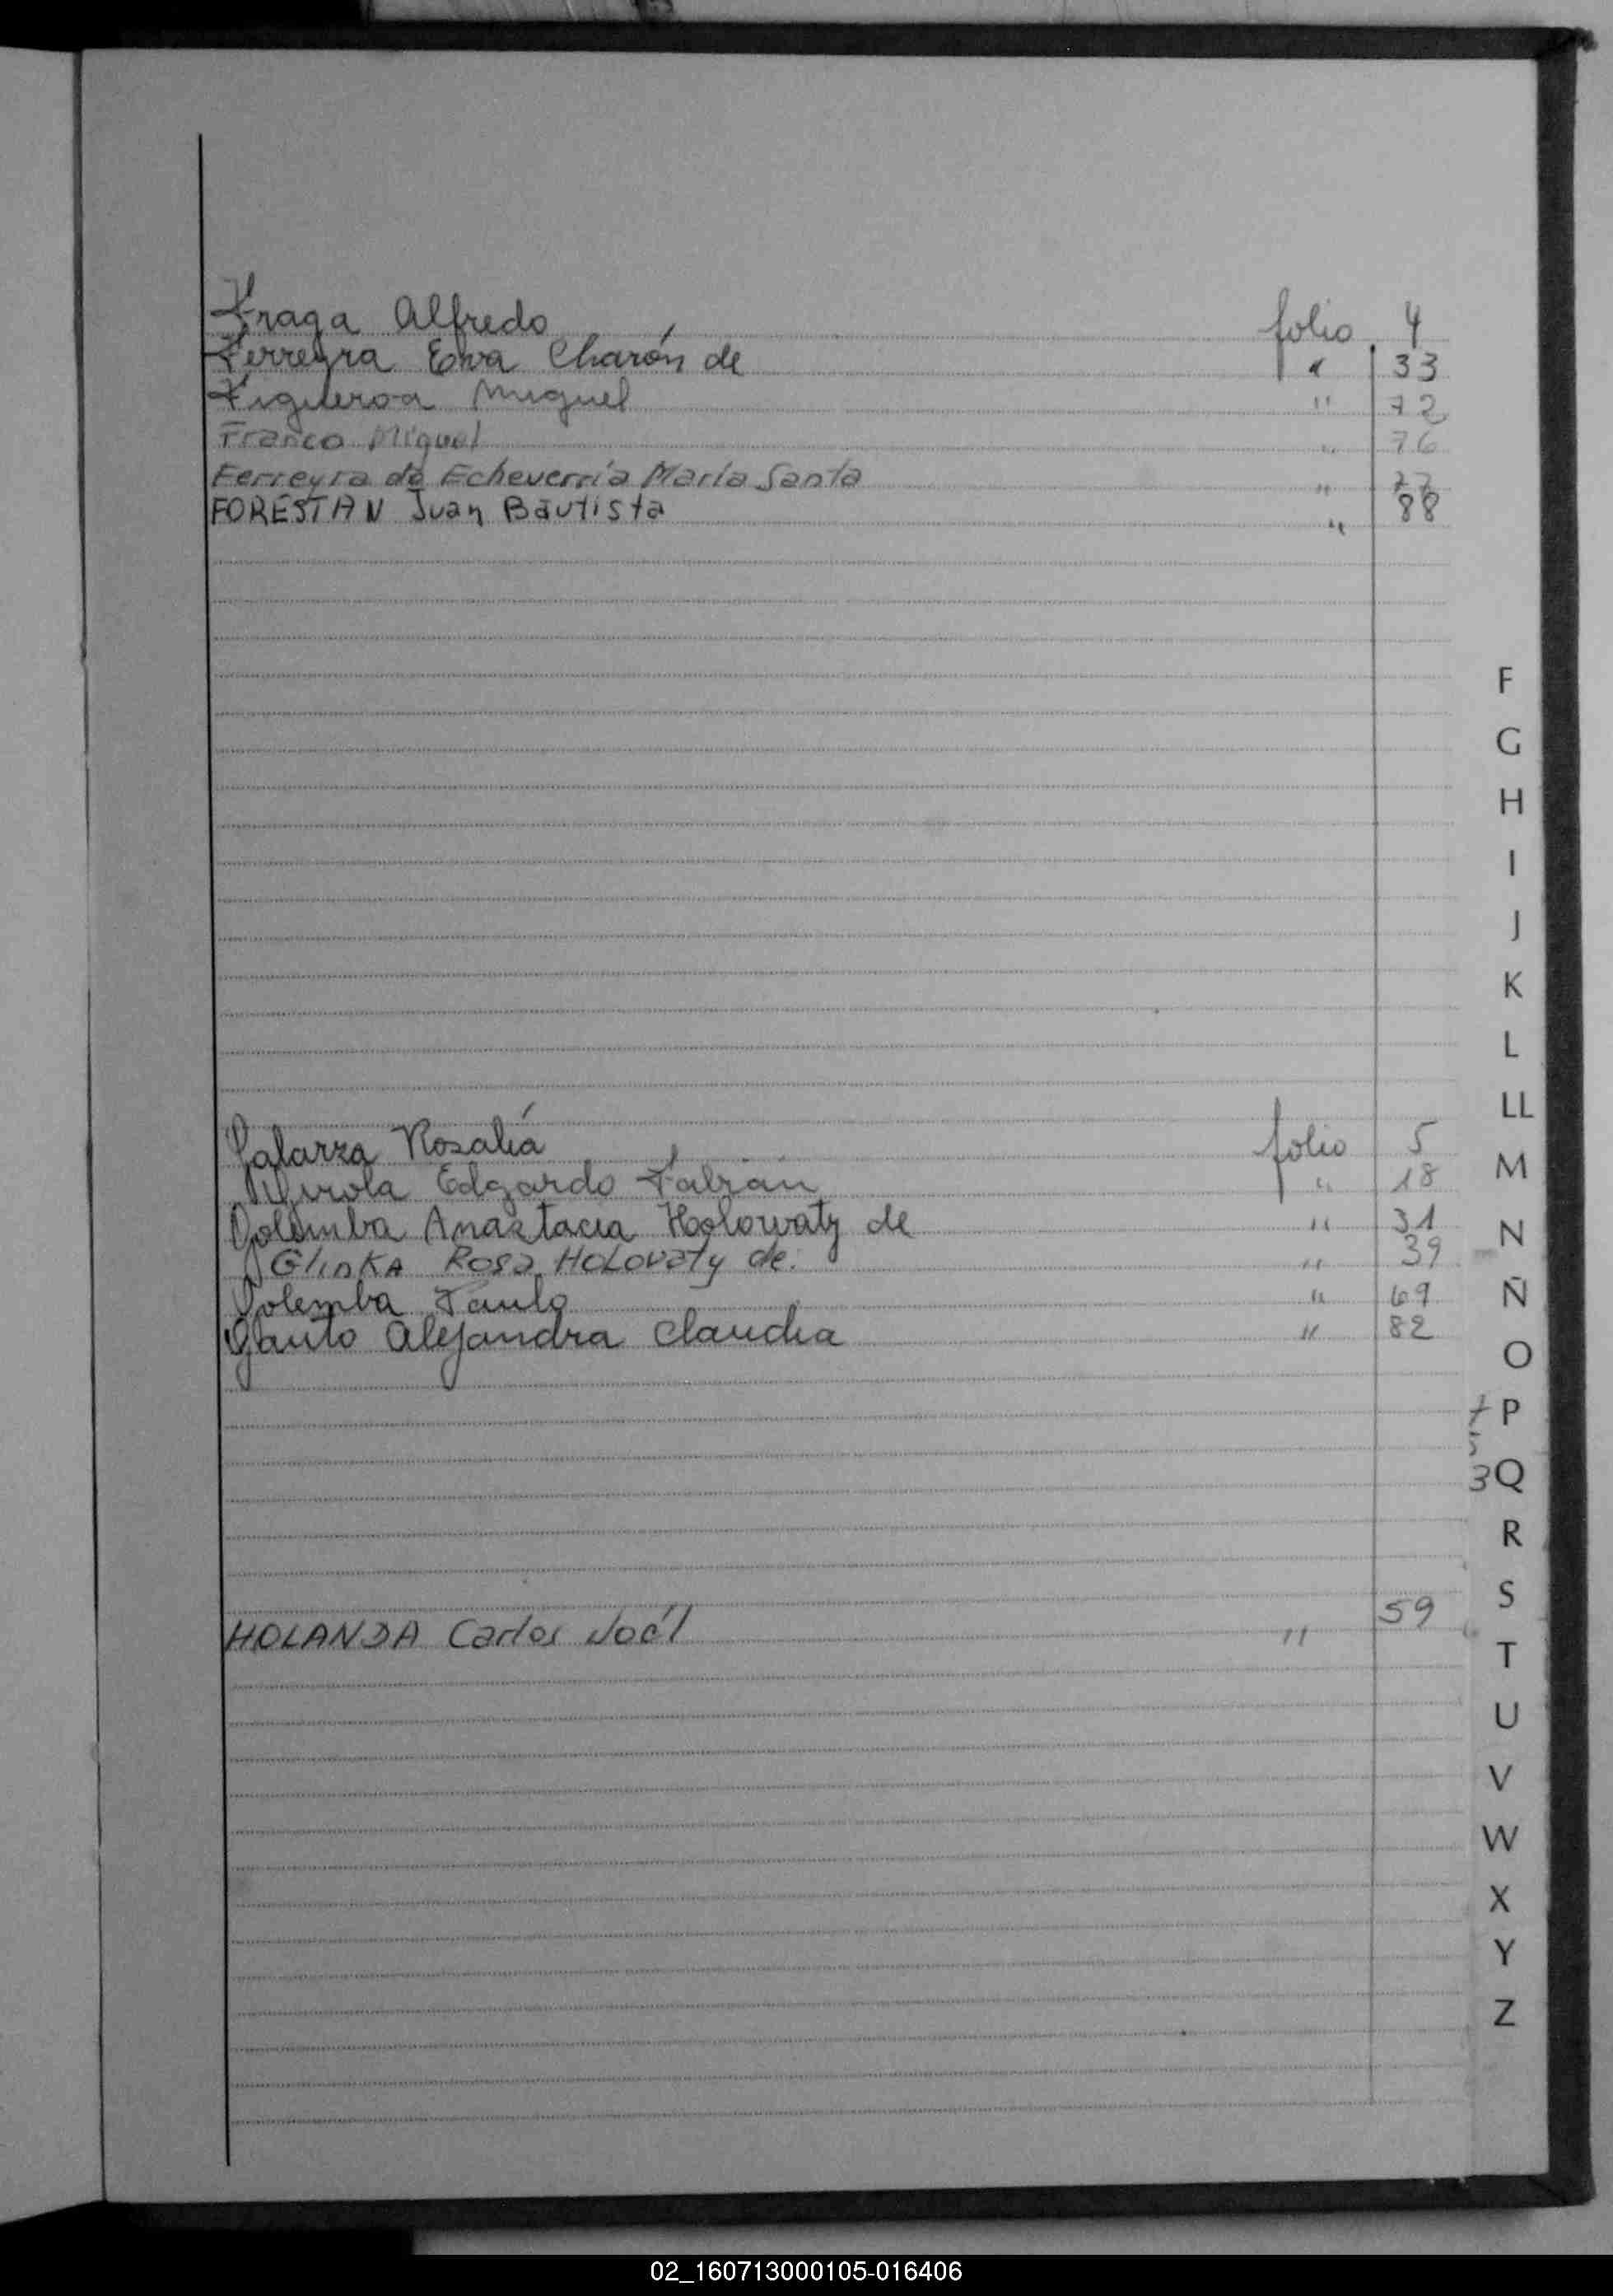 Fraga Alfredo folio 4
Ferreyra Eva Charón de " 33
Figueroa Miguel " 72
Franco Miguel " 76
Ferreyra de Echeverría María Santa " 77
FORESTAN Juan Bautista " 88
F
G
H
I
J
K
L
LL
Galarza Rosalía folio 5
M
Edgardo Fabián " 18
Golemba Anastacia Holowaty de " 31
N
Glinka Rosa Holovaty de. " 39
Golemba Paulo " 69
Ñ
Gauto Alejandra Claudia " 82
O
P
3 Q
R
S
HOLANDA Carlos Joél " 59
T
U
V
W
X
Y
Z
02_160713000105-016406